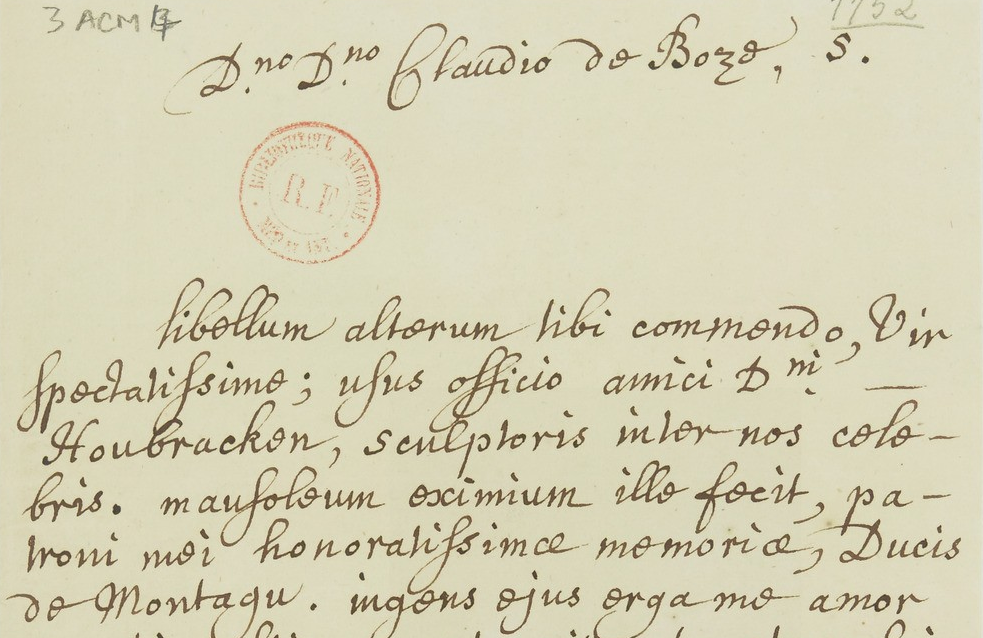 3 ACM
1752
D.no D.no Claudio de Boze, s.
BIBLIOTHÈQUE NATIONALE
R.F.
libellum alterum tibi commendo, Vir
spectatissime; usus officio amici D.ni —
Houbracken, sculptoris inter nos cele-
bris. mausoleum eximium ille fecit, pa-
troni mei honoratissimæ memoriæ, Ducis
de Montagu. ingens ejus erga me amor